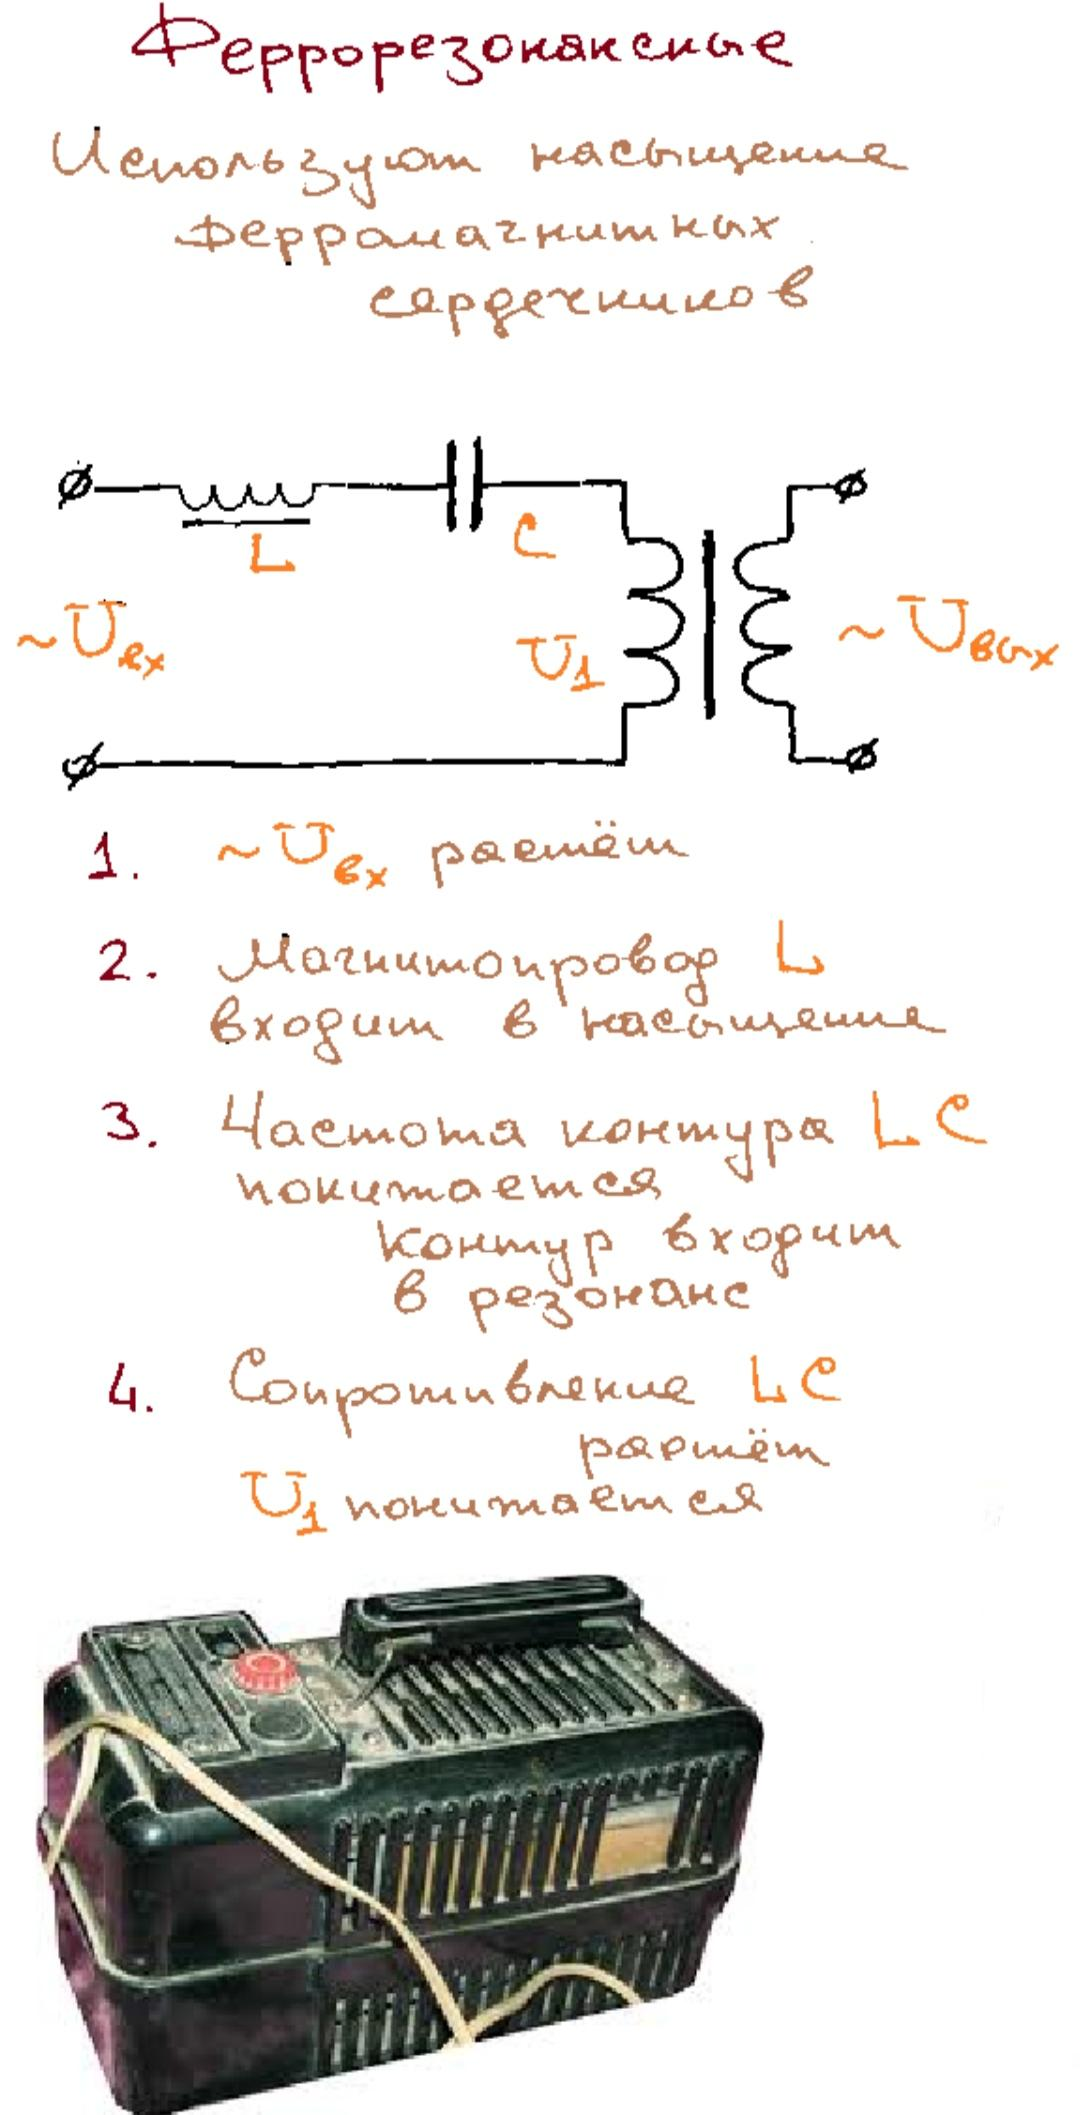 Феррорезонансные
Используют насыщение
ферромагнитных
сердечников
L
C
~Uвх
U1
~Uвых
1. ~Uвх растёт
2. Магнитопровод L
входит в насыщение
3. Частота контура LC
понижается
контур входит
в резонанс
4. Сопротивление LC
растёт
U1 понижается